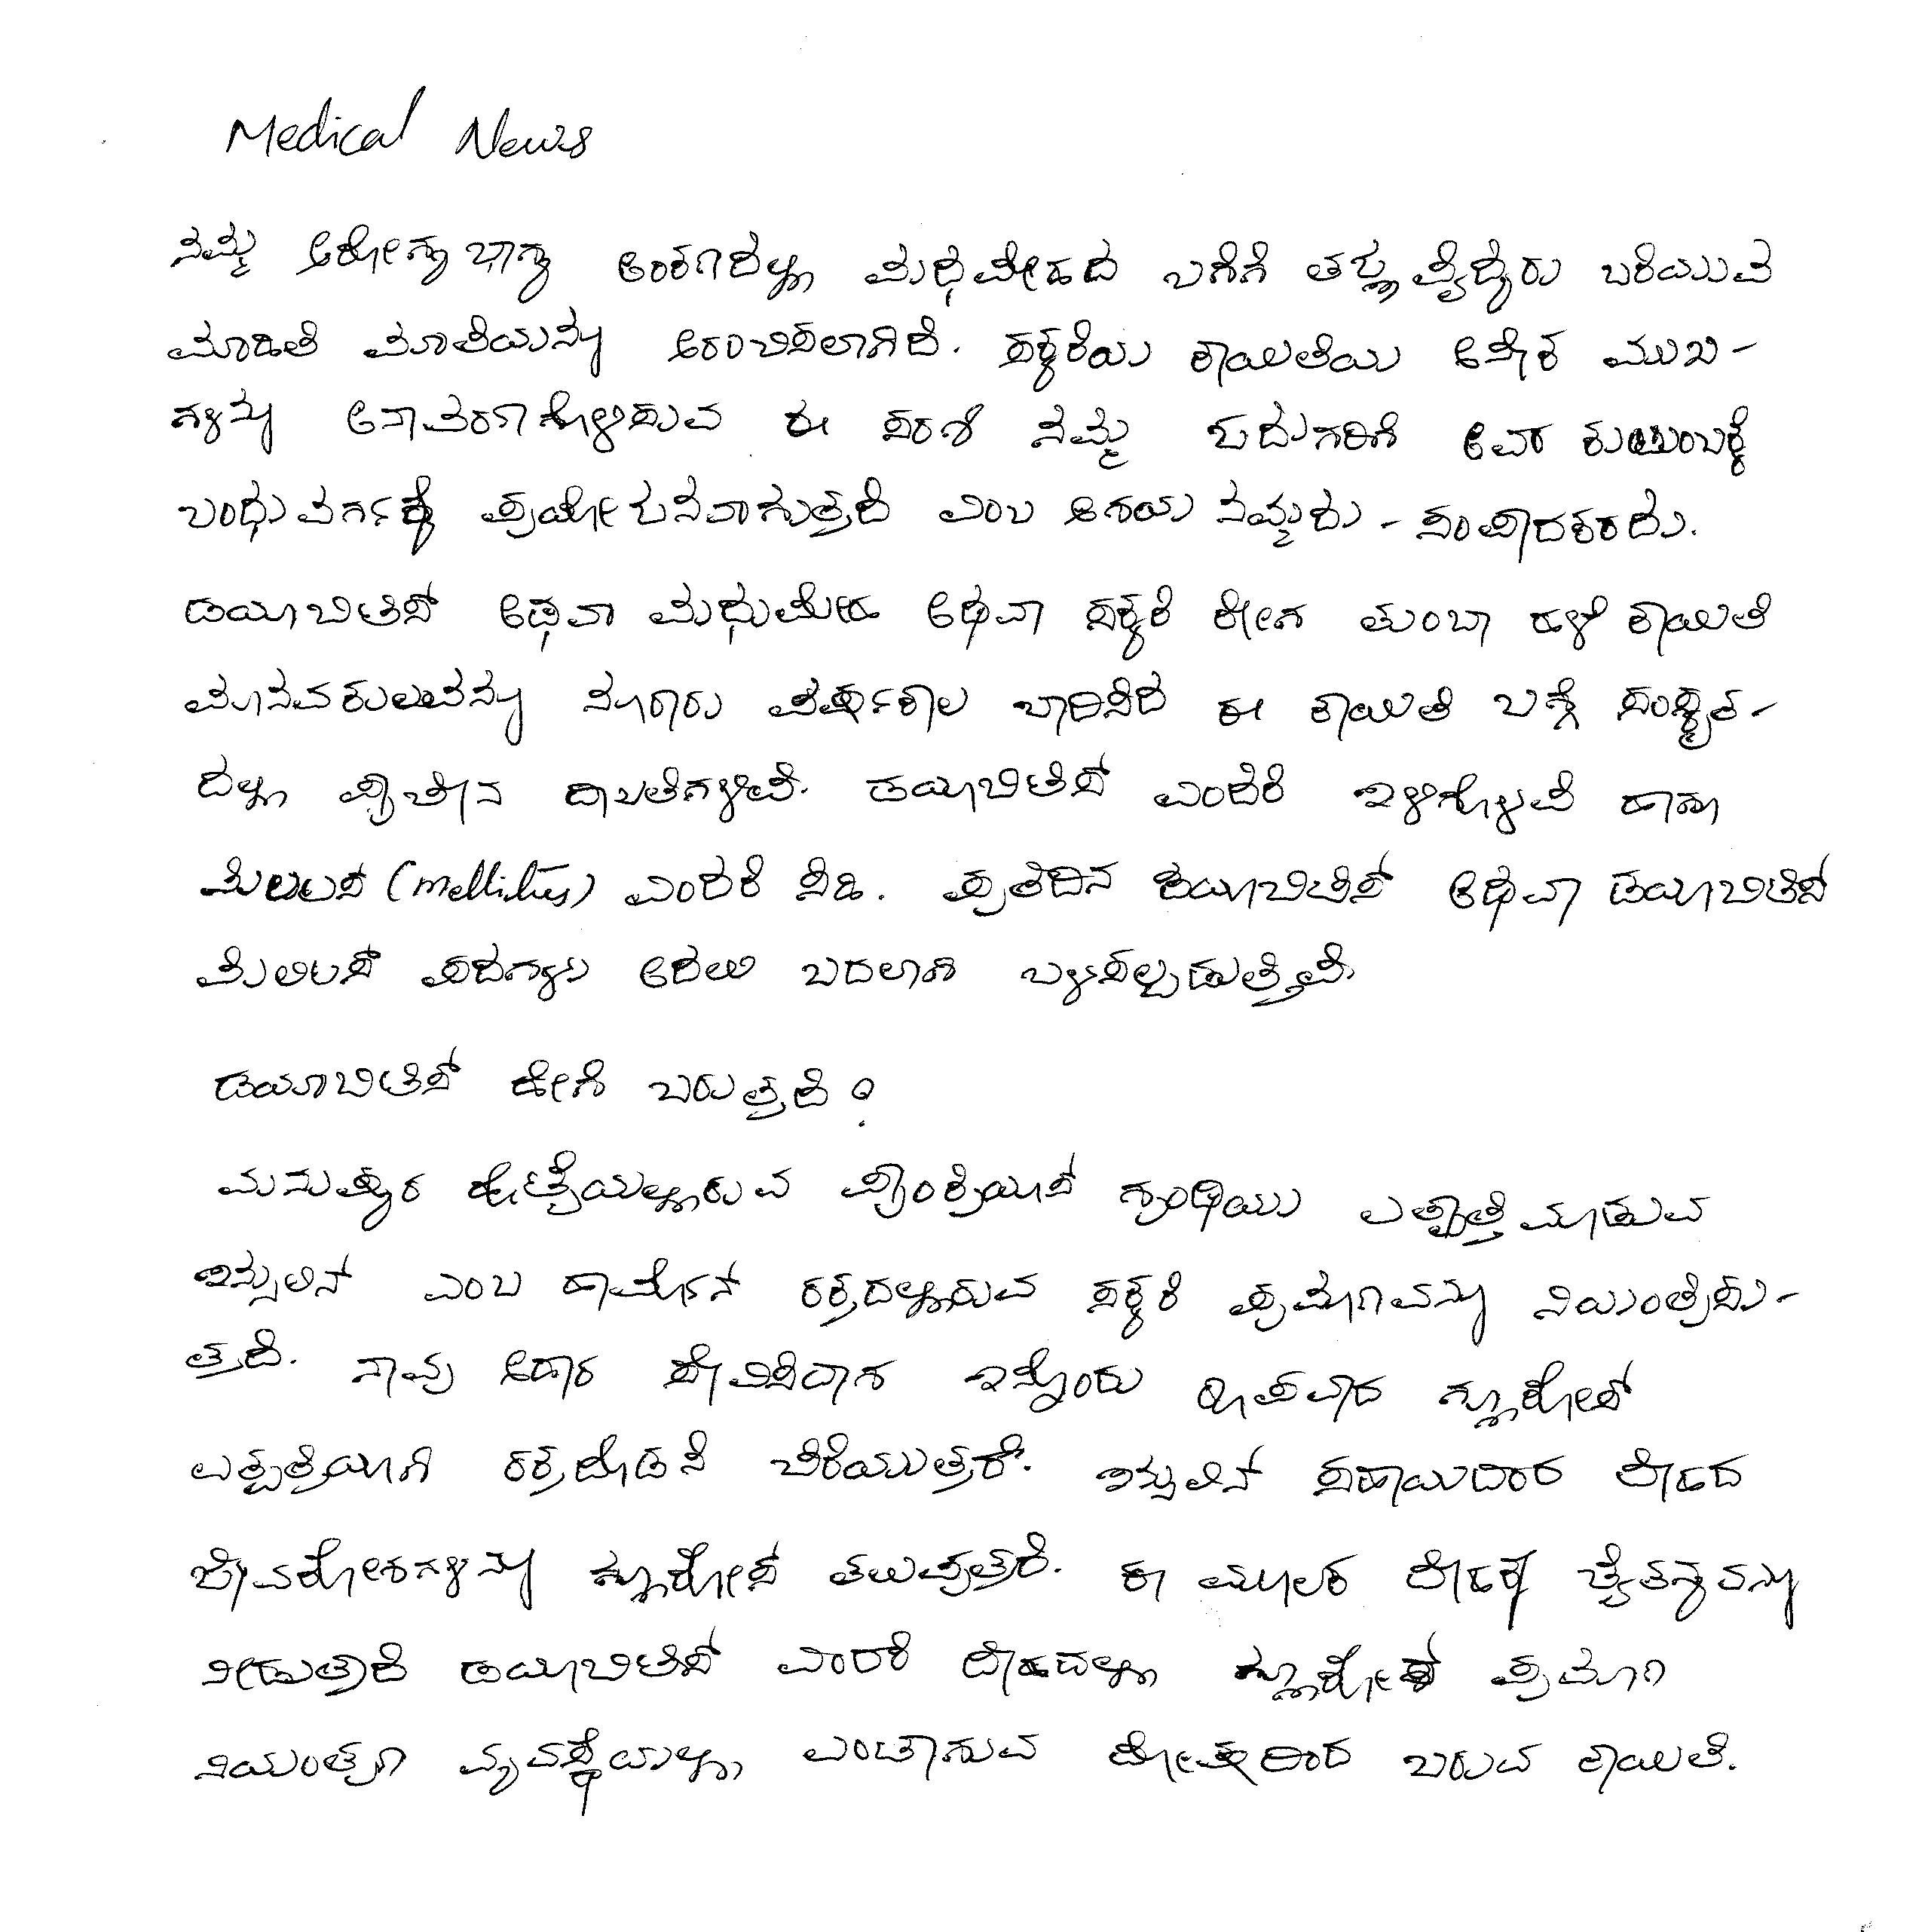 Medical News
ನಿಮ್ಮ ಆರೋಗ್ಯ ಭಾಗ್ಯ ಅಂಕಣದಲ್ಲಿ ಮಧುಮೇಹದ ಬಗೆಗೆ ತಜ್ಞ ವೈದ್ಯರು ಬರೆಯುವ
ಮಾಹಿತಿ ಮಾಲೆಯನ್ನು ಆರಂಭಿಸಲಾಗಿದೆ. ಸಕ್ಕರೆಯ ಕಾಯಿಲೆಯ ಅನೇಕ ಮುಖ-
ಗಳನ್ನು ಅನಾವರಣಗೊಳಿಸುವ ಈ ಸರಣಿ ನಮ್ಮ ಓದುಗರಿಗೆ ಅವರ ಕುಟುಂಬಕ್ಕೆ
ಬಂಧುವರ್ಗಕ್ಕೆ ಪ್ರಯೋಜನವಾಗುತ್ತದೆ ಎಂಬ ಆಶಯ ನಮ್ಮದು - ಸಂಪಾದಕರದು.
ಡಯಾಬಿಟಿಸ್ ಅಥವಾ ಮಧುಮೇಹ ಅಥವಾ ಸಕ್ಕರೆ ರೋಗ ತುಂಬಾ ಹಳೆ ಕಾಯಿಲೆ
ಮಾನವಕುಲವನ್ನು ನೂರಾರು ವರ್ಷಕಾಲ ಬಾಧಿಸಿದ ಈ ಕಾಯಿಲೆ ಬಗ್ಗೆ ಸಂಸ್ಕೃತ-
ದಲ್ಲಿ ಪ್ರಾಚೀನ ದಾಖಲೆಗಳಿವೆ. ಡಯಾಬಿಟಿಸ್ ಎಂದರೆ ಇಳಿಗೊಳವೆ ಹಾಗೂ
ಮೆಲಿಟಸ್ (mellitus) ಎಂದರೆ ಸಿಹಿ. ಪ್ರತಿದಿನ ಡಯಾಬಿಟಿಸ್ ಅಥವಾ ಡಯಾಬಿಟಿಸ್
ಮೆಲಿಟಸ್ ಪದಗಳು ಅದಲು ಬದಲಾಗಿ ಬಳಸಲ್ಪಡುತ್ತವೆ.
ಡಯಾಬಿಟಿಸ್ ಹೇಗೆ ಬರುತ್ತದೆ?
ಮನುಷ್ಯರ ಹೊಟ್ಟೆಯಲ್ಲಿರುವ ಪ್ಯಾಂಕ್ರಿಯಾಸ್ ಗ್ರಂಥಿಯು ಉತ್ಪತ್ತಿ ಮಾಡುವ
ಇನ್ಸುಲಿನ್ ಎಂಬ ಹಾರ್ಮೋನ್ ರಕ್ತದಲ್ಲಿರುವ ಸಕ್ಕರೆ ಪ್ರಮಾಣವನ್ನು ನಿಯಂತ್ರಿಸು-
ತ್ತದೆ. ನಾವು ಆಹಾರ ಸೇವಿಸಿದಾಗ ಇನ್ನೊಂದು ರೂಪವಾದ ಗ್ಲೂಕೋಸ್
ಉತ್ಪತ್ತಿಯಾಗಿ ರಕ್ತದೊಡನೆ ಬೆರೆಯುತ್ತದೆ. ಇನ್ಸುಲಿನ್ ಸಹಾಯದಿಂದ ದೇಹದ
ಜೀವಕೋಶಗಳನ್ನು ಗ್ಲೂಕೋಸ್ ತಲುಪುತ್ತದೆ. ಈ ಮೂಲಕ ದೇಹಕ್ಕೆ ಚೈತನ್ಯವನ್ನು
ನೀಡುತ್ತದೆ ಡಯಾಬಿಟಿಸ್ ಎಂದರೆ ದೇಹದಲ್ಲಿ ಗ್ಲೂಕೋಸ್ ಪ್ರಮಾಣ
ನಿಯಂತ್ರಣ ವ್ಯವಸ್ಥೆಯಲ್ಲಿ ಉಂಟಾಗುವ ದೋಷದಿಂದ ಬರುವ ಕಾಯಿಲೆ.